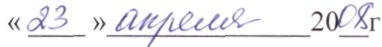 « 23 » апреля 2008г